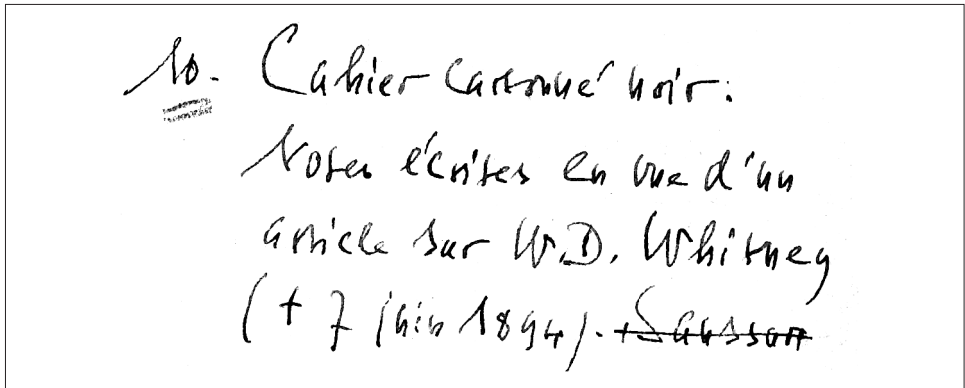 10. Cahier cartonné noir:
Notes écrites en vue d'un
article sur W.D. Whitney
(† 7 juin 1894).